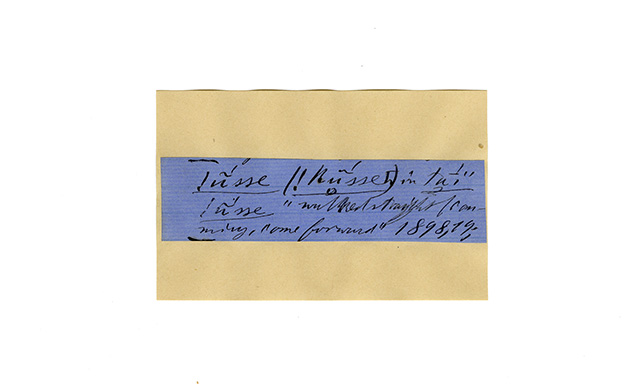 Tṹsse (! Kṹsse) in tú"
! ṹsse " walked straight / com-
ming, come forward" 1898, 19;